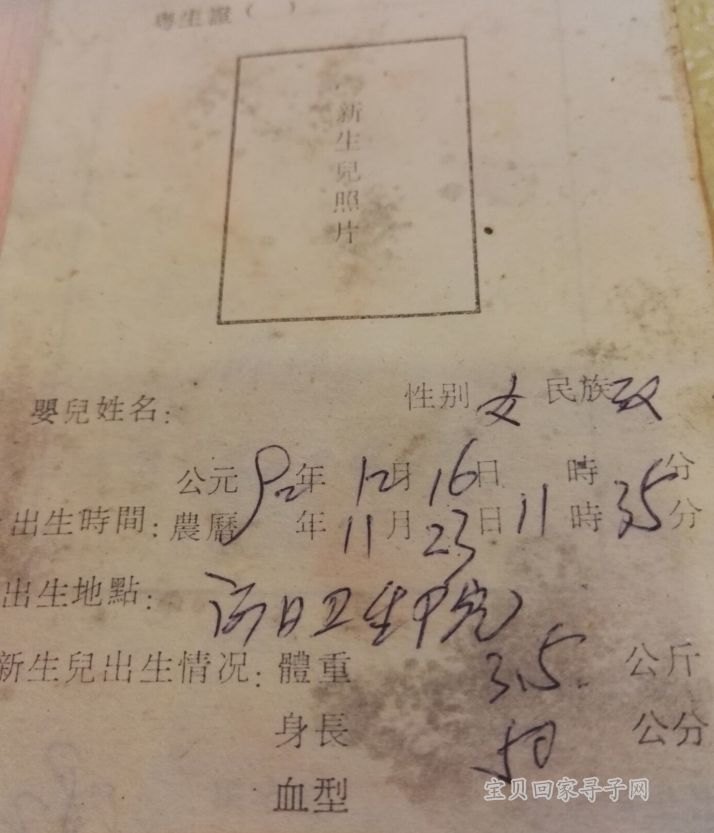 粤生證（ ）
新生兒照片
嬰兒姓名： 性别 女 民族 汉
公元 92年 12月 16日 時 分
出生時間：農曆 年 11月 23日 11時 35分
出生地點： 卫生院
新生兒出生情况：體重 3.5 公斤
身長 50 公分
血型
宝贝回家寻子网